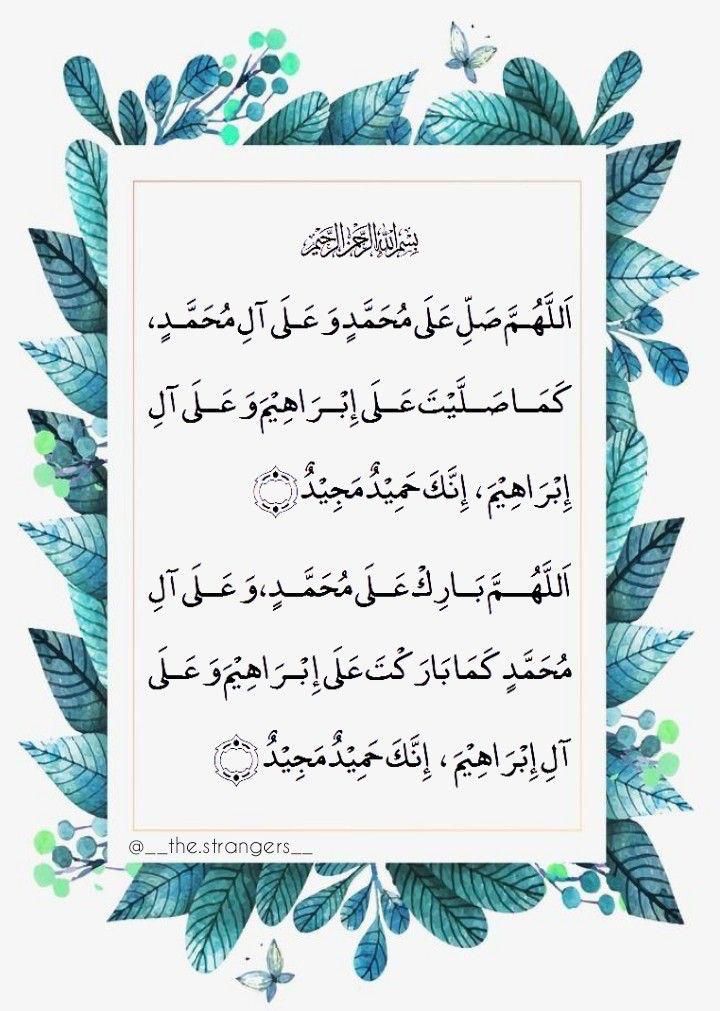 بِسْمِ اللهِ الرَّحْمٰنِ الرَّحِيْمِ
اَللَّهُمَّ صَلِّ عَلَى مُحَمَّدٍ وَ عَلَى آلِ مُحَمَّدٍ،
كَمَا صَلَّيْتَ عَلَى إِبْرَاهِيْمَ وَ عَلَى آلِ
إِبْرَاهِيْمَ، إِنَّكَ حَمِيْدٌ مَجِيْدٌ
اَللَّهُمَّ بَارِكْ عَلَى مُحَمَّدٍ، وَ عَلَى آلِ
مُحَمَّدٍ كَمَا بَارَكْتَ عَلَى إِبْرَاهِيْمَ وَ عَلَى
آلِ إِبْرَاهِيْمَ، إِنَّكَ حَمِيْدٌ مَجِيْدٌ
@__the.strangers__